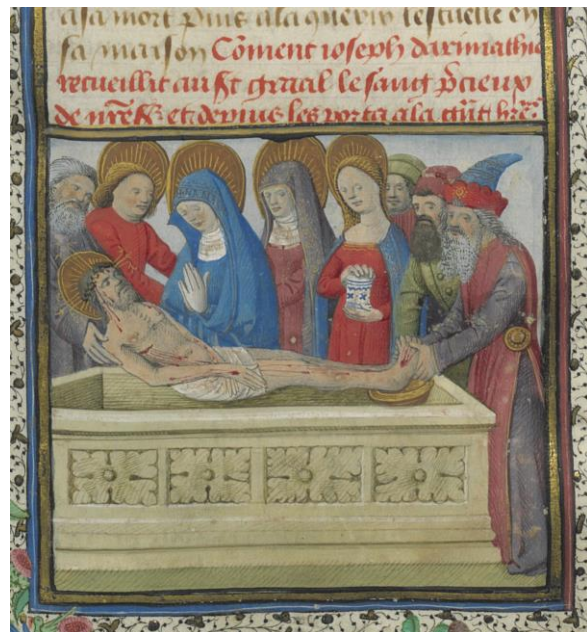 a sa mort puis a la querir lescuelle en
sa maison Cōment ioseph darimathie
recueillit au sct graal le sang p̄cieux
de nr̄e sr̄ et depuis les porta a la